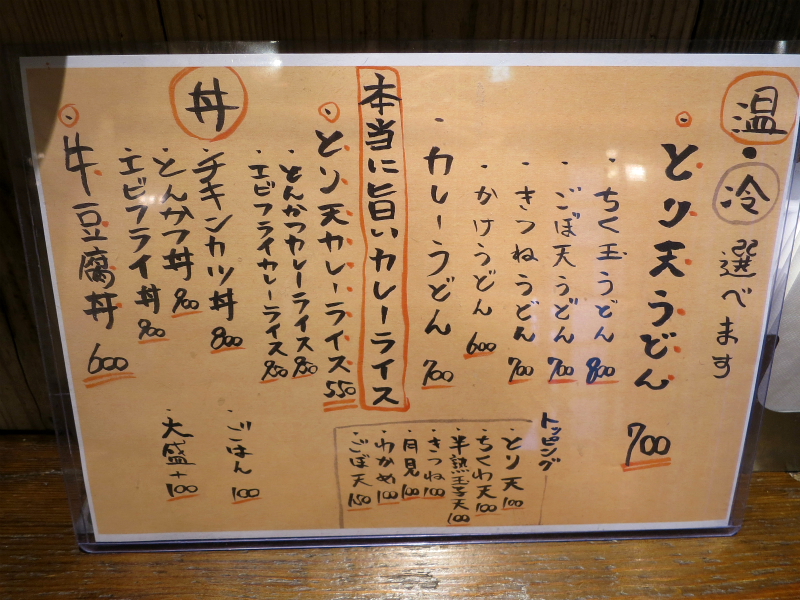 温・冷 選べます
とり天うどん 700
・ちく玉うどん 800
・ごぼ天うどん 700
・きつねうどん 700
・かけうどん 600
・カレーうどん 700
本当に旨いカレーライス
とり天カレーライス 550
・とんかつカレーライス 950
・エビフライカレーライス 950
丼
・チキンカツ丼 800
・とんかつ丼 900
・エビフライ丼 900
牛豆腐丼 600
トッピング
・とり天 100
・ちくわ天 100
・半熟玉子天 100
・きつね 100
・月見 100
・わかめ 100
・ごぼ天 150
・ごはん 100
・大盛+100